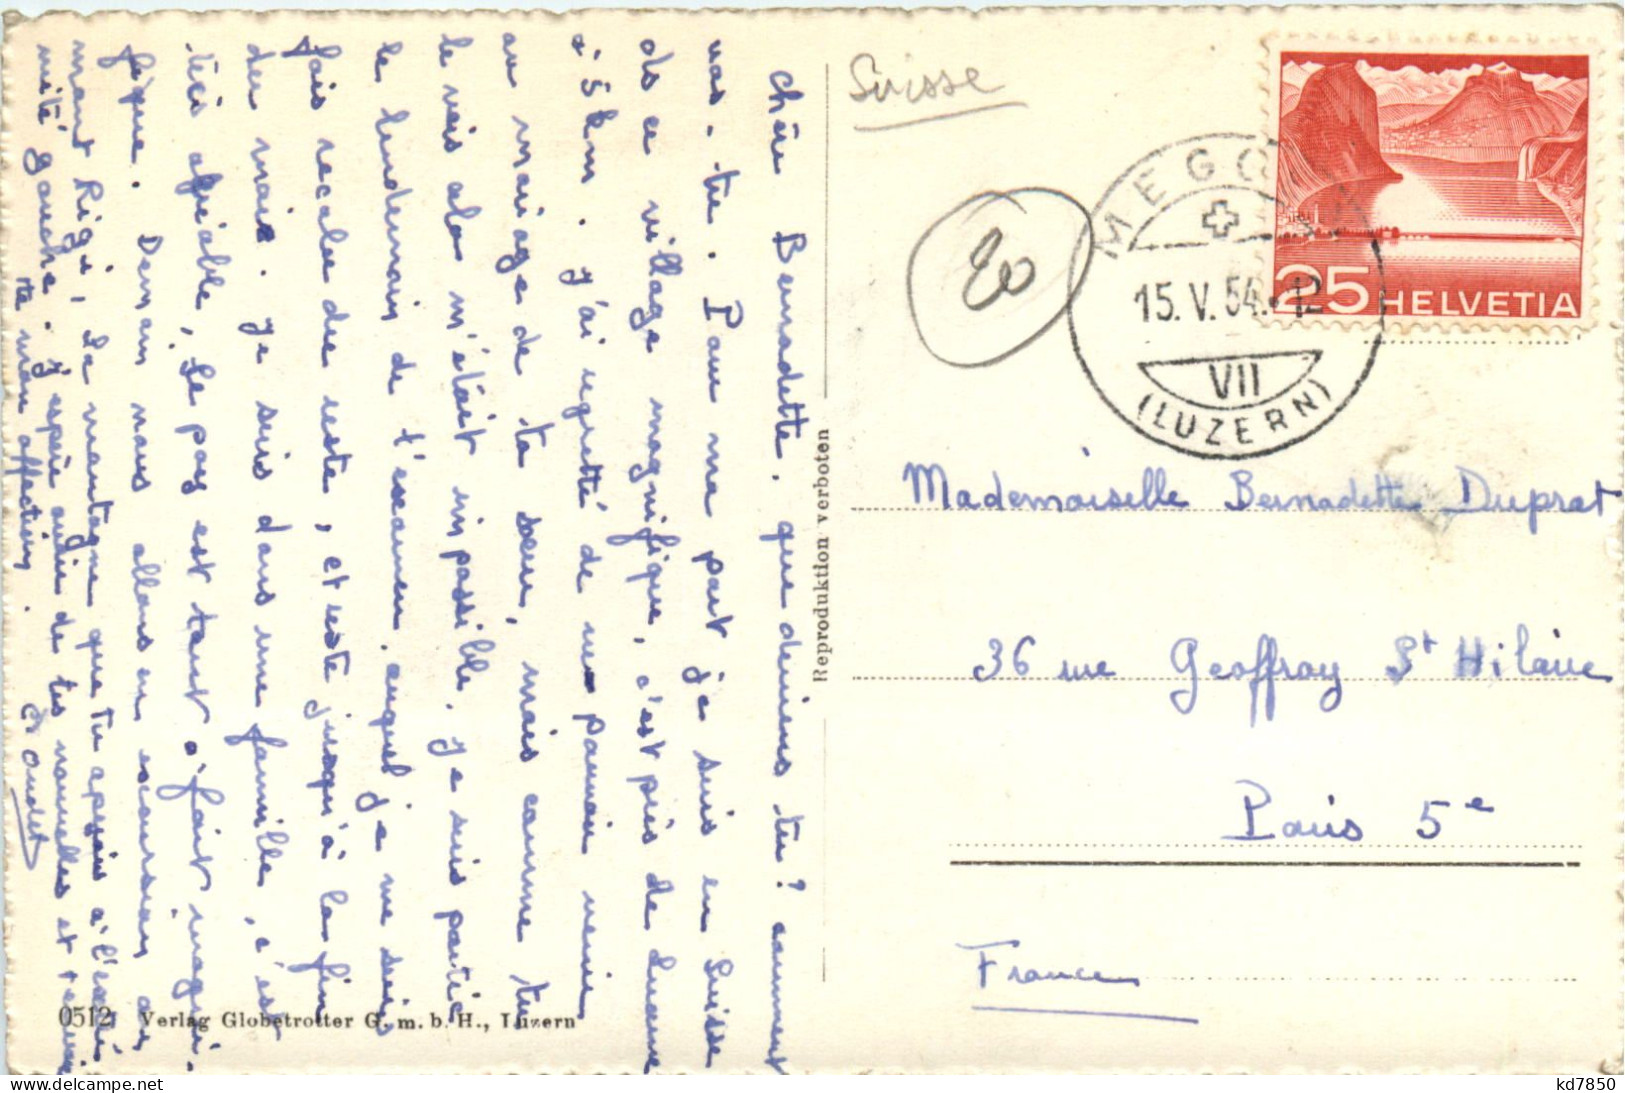 chère Bernadette, que deviens tu? comment
vas-tu. Pour ma part je suis en Suisse
ds ce village magnifique, c'est près de Lucerne
à 5km. j'ai regretté de ne pouvoir venir
au mariage de ta sœur, mais comme tu
le vois alors m'était impossible. je suis partie
le lendemain de l'examen auquel je me suis
fais recaler du reste, et reste jusqu'à la fin
du mois. je suis dans une famille, c'est
très agréable, le pays est tout à fait magni-
fique. Demain nous allons en excursion au
mont Rigi, la montagne que tu aperçois à l'extré-
mité gauche. j'espère avoir de tes nouvelles et t'envoie
tte mon affection.
Suisse
20
MEGGEN
15.V.54.-12
VII
(LUZERN)
25 HELVETIA
Reproduktion verboten
Mademoiselle Bernadette Duprat
36 rue Geoffroy St Hilaire
Paris 5e
France
0512 Verlag Globetrotter G. m. b. H., Luzern
kd7850